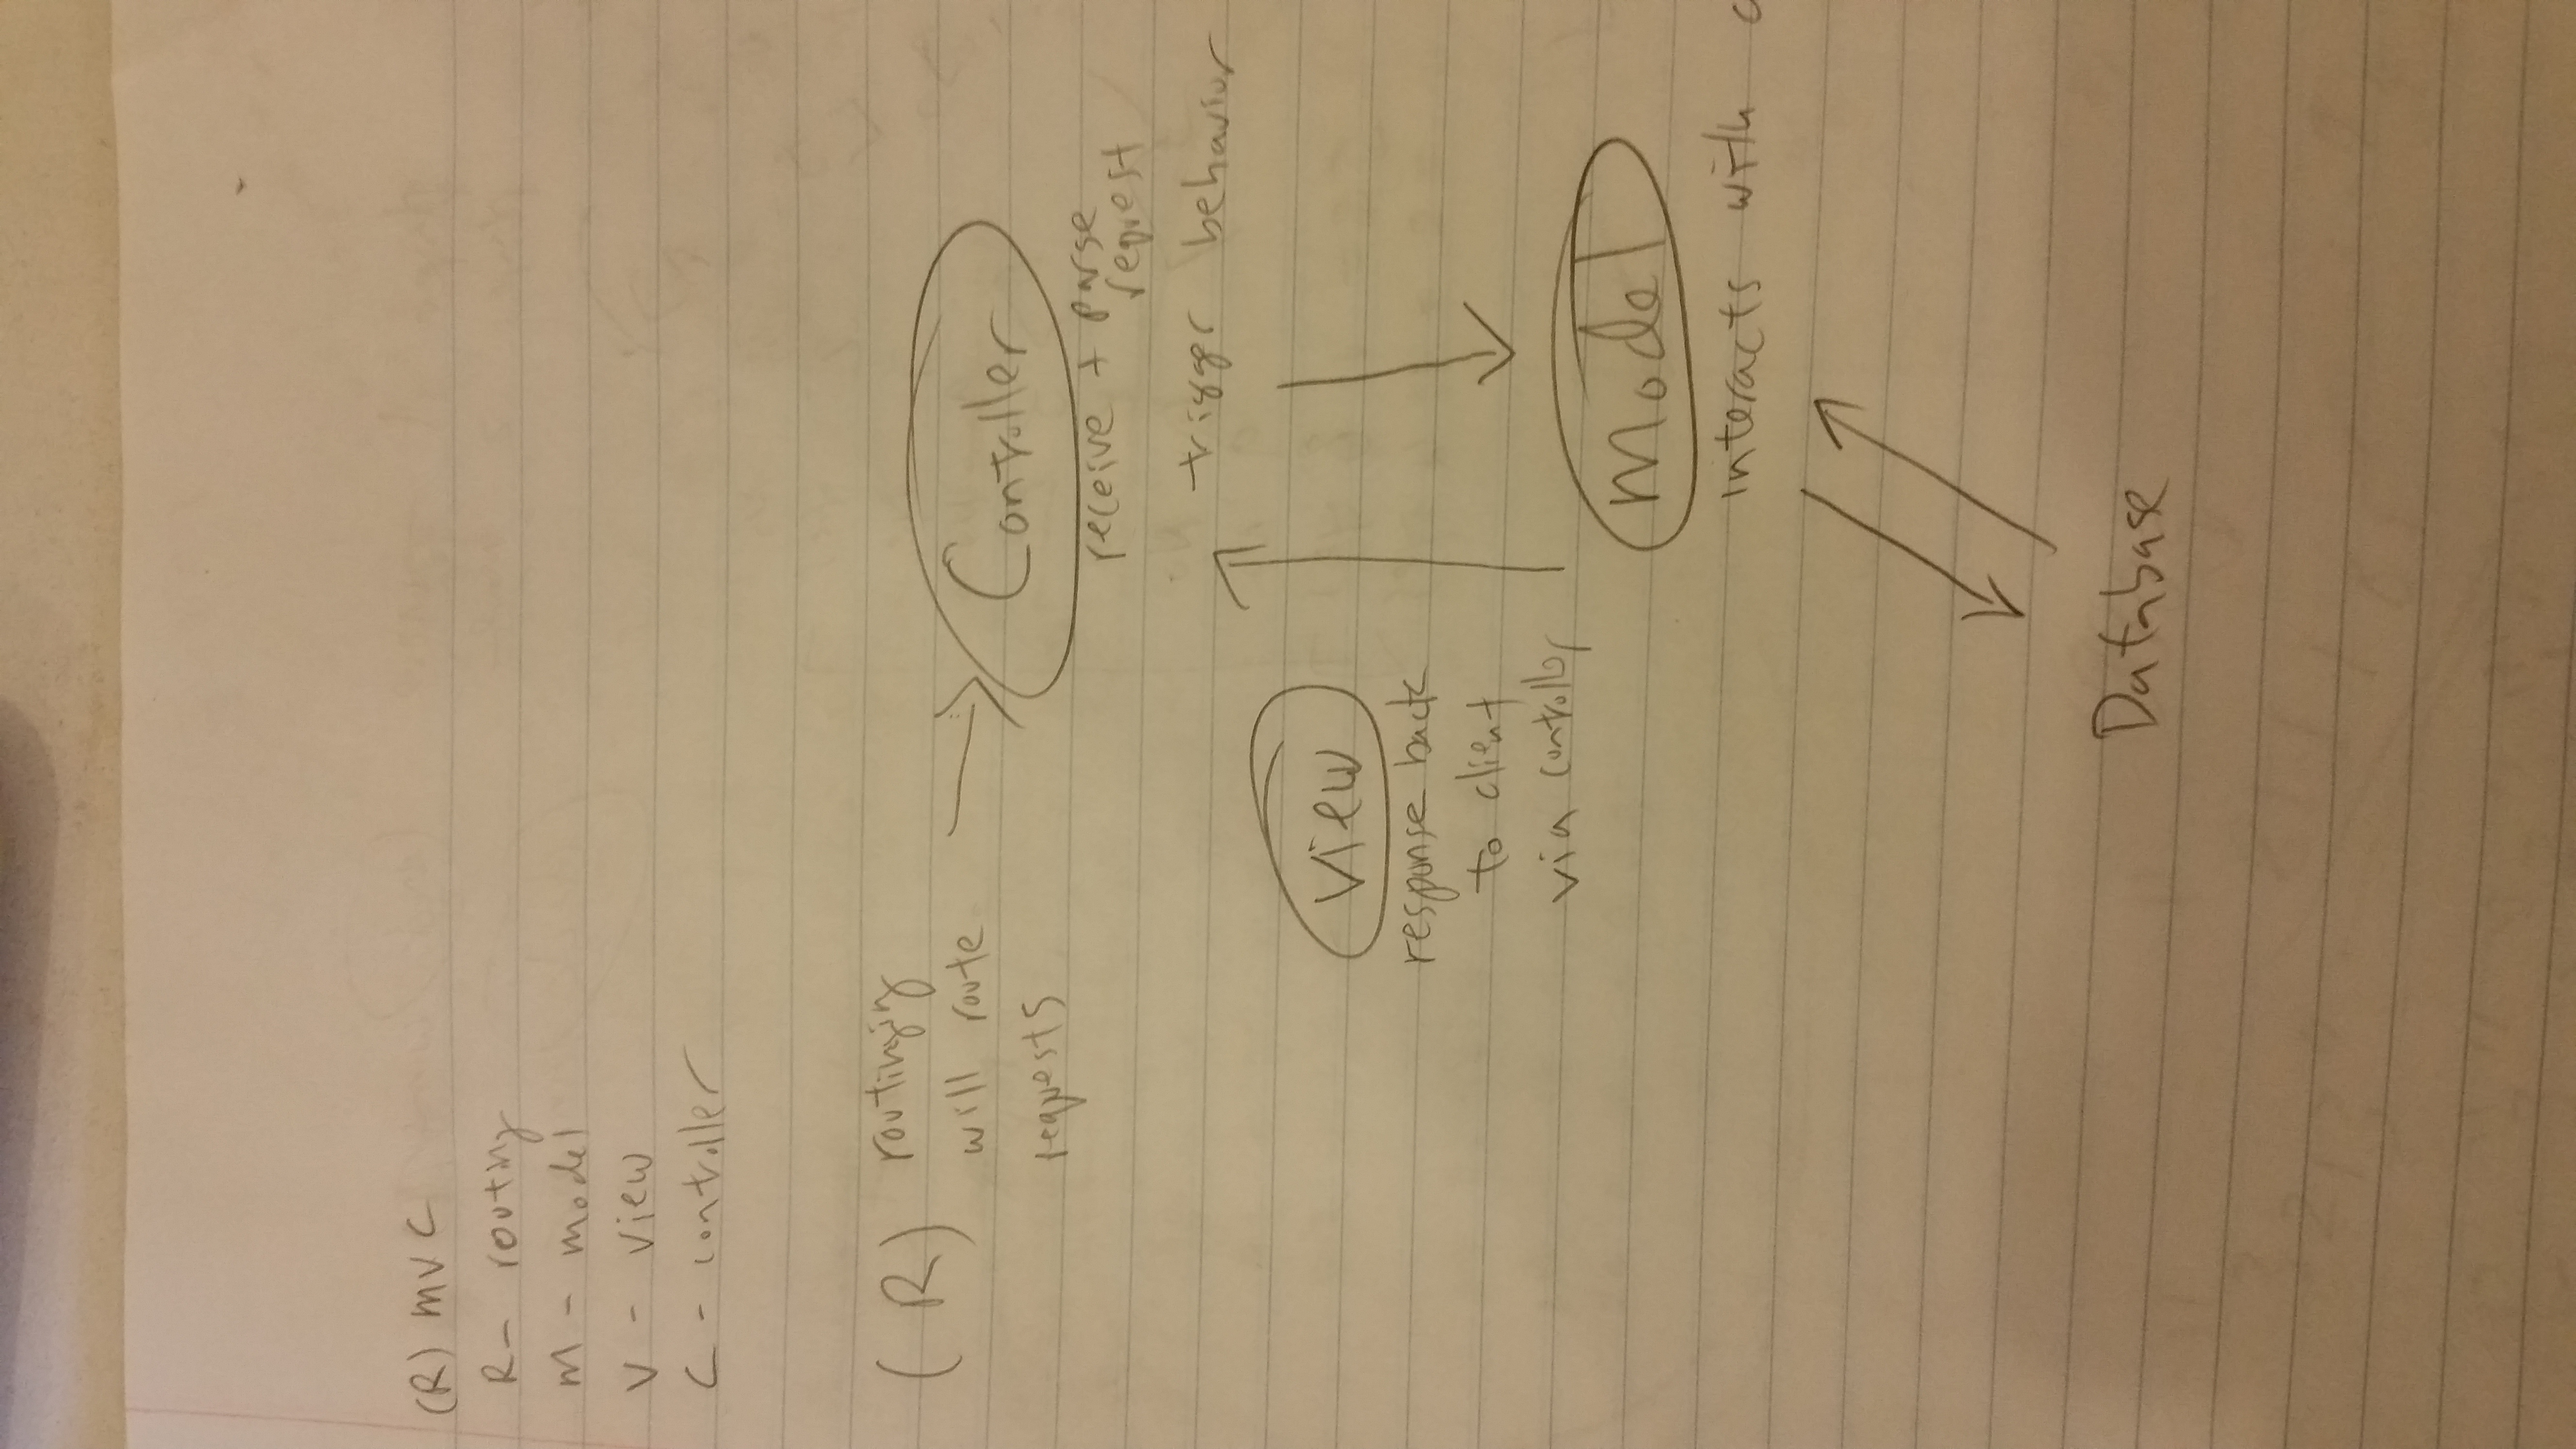 (R) MVC
R - routing
M - model
V - view
C - controller
(R) routinging
will route
requests
Controller
receive + parse
request
trigger behavior
View
response back
to client
via controller
Model
interacts with
Database